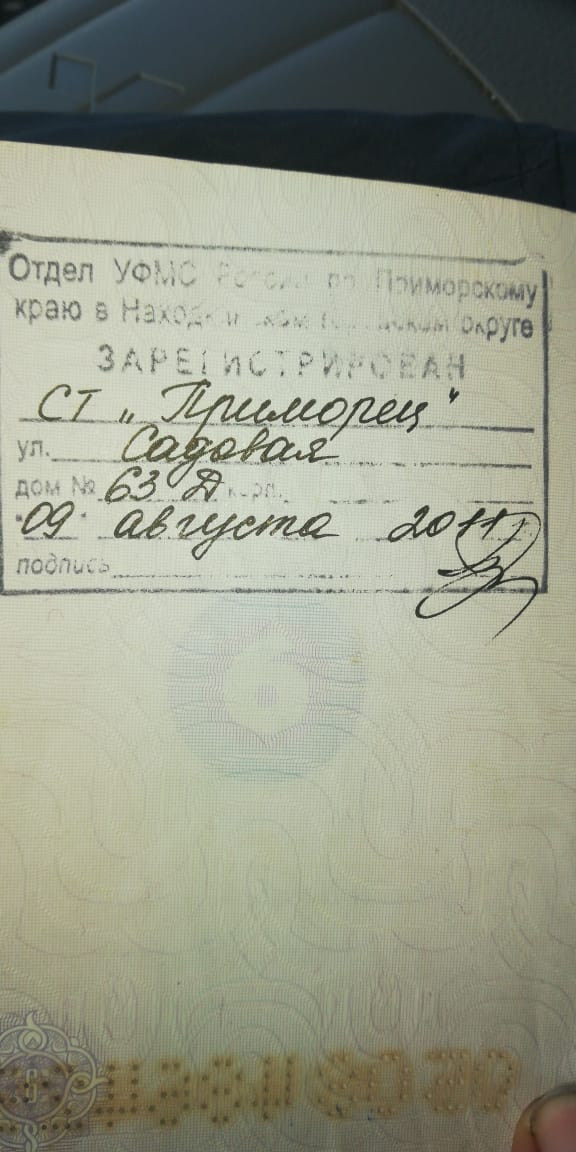 Отдел УФМС России по Приморскому
краю в Находкинском городском округе
ЗАРЕГИСТРИРОВАН
СТ „Приморец"
ул. Садовая
дом № 63 Д корп.
"09" августа 2011
подпись